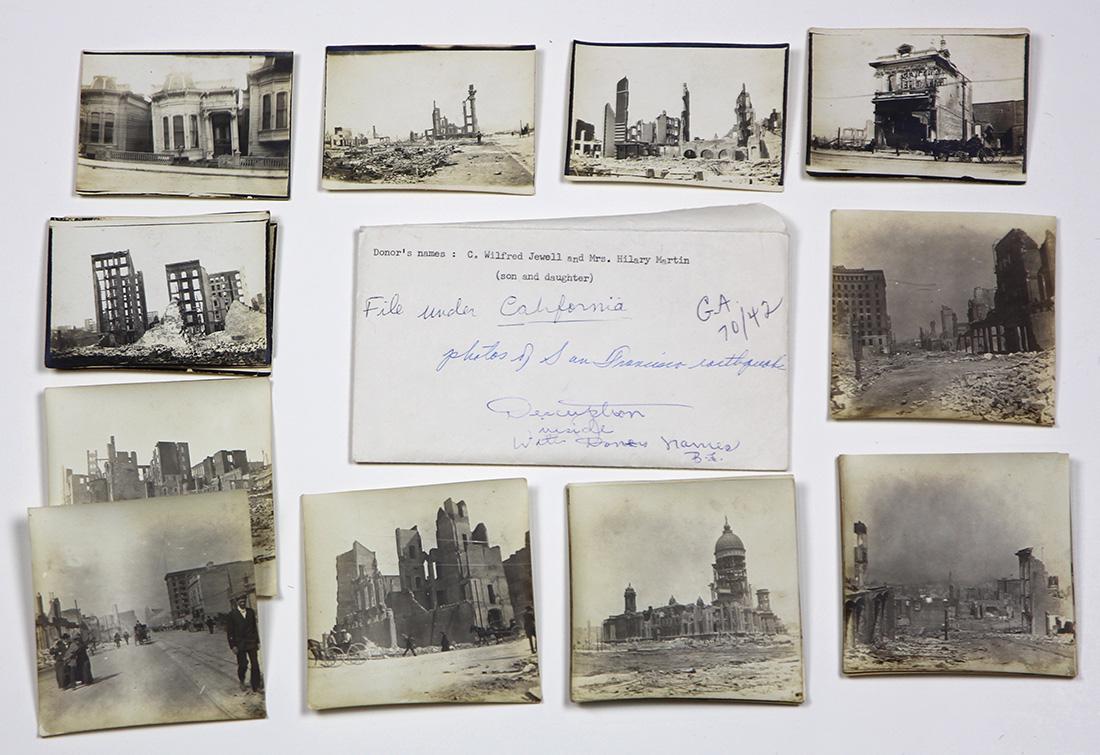 Donor's names : C. Wilfred Jewell and Mrs. Hilary Martin
(son and daughter)
File under California
GA
70/42
photos of San Francisco earthquake
Description
inside
With Donors Names